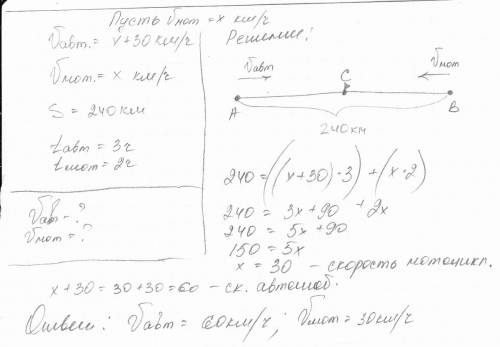 Пусть Vмот = x км/ч
Vавт. = x+30 км/ч
Vмот. = x км/ч
S = 240 км
tавт = 3ч
tмот = 2ч
Vавт - ?
Vмот = ?
Решение:
Vавт
C
Vмот
A
B
240 км
240 = ((x+30)·3) + (x·2)
240 = 3x+90 + 2x
240 = 5x+90
150 = 5x
x = 30 - скорость мотоцикл.
x+30 = 30+30 = 60 - ск. автомоб.
Ответ: Vавт = 60км/ч; Vмот = 30км/ч